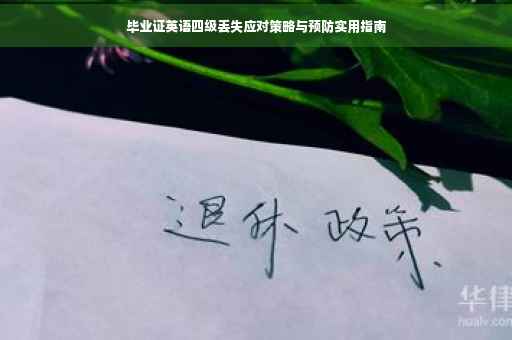 毕业证英语四级丢失应对策略与预防实用指南
退休 政策
华律
hualv.com